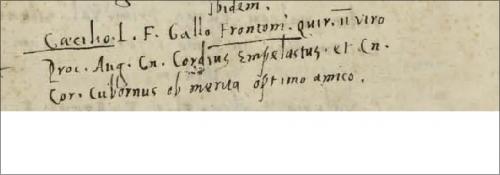 Ibidem.
Cæcilio. L. F. Gallo Frontoni. quir. II viro
Proc. Aug. Cn. Cordius Empelastus. et Cn.
Cor. Cubornus ob merita optimo amico.